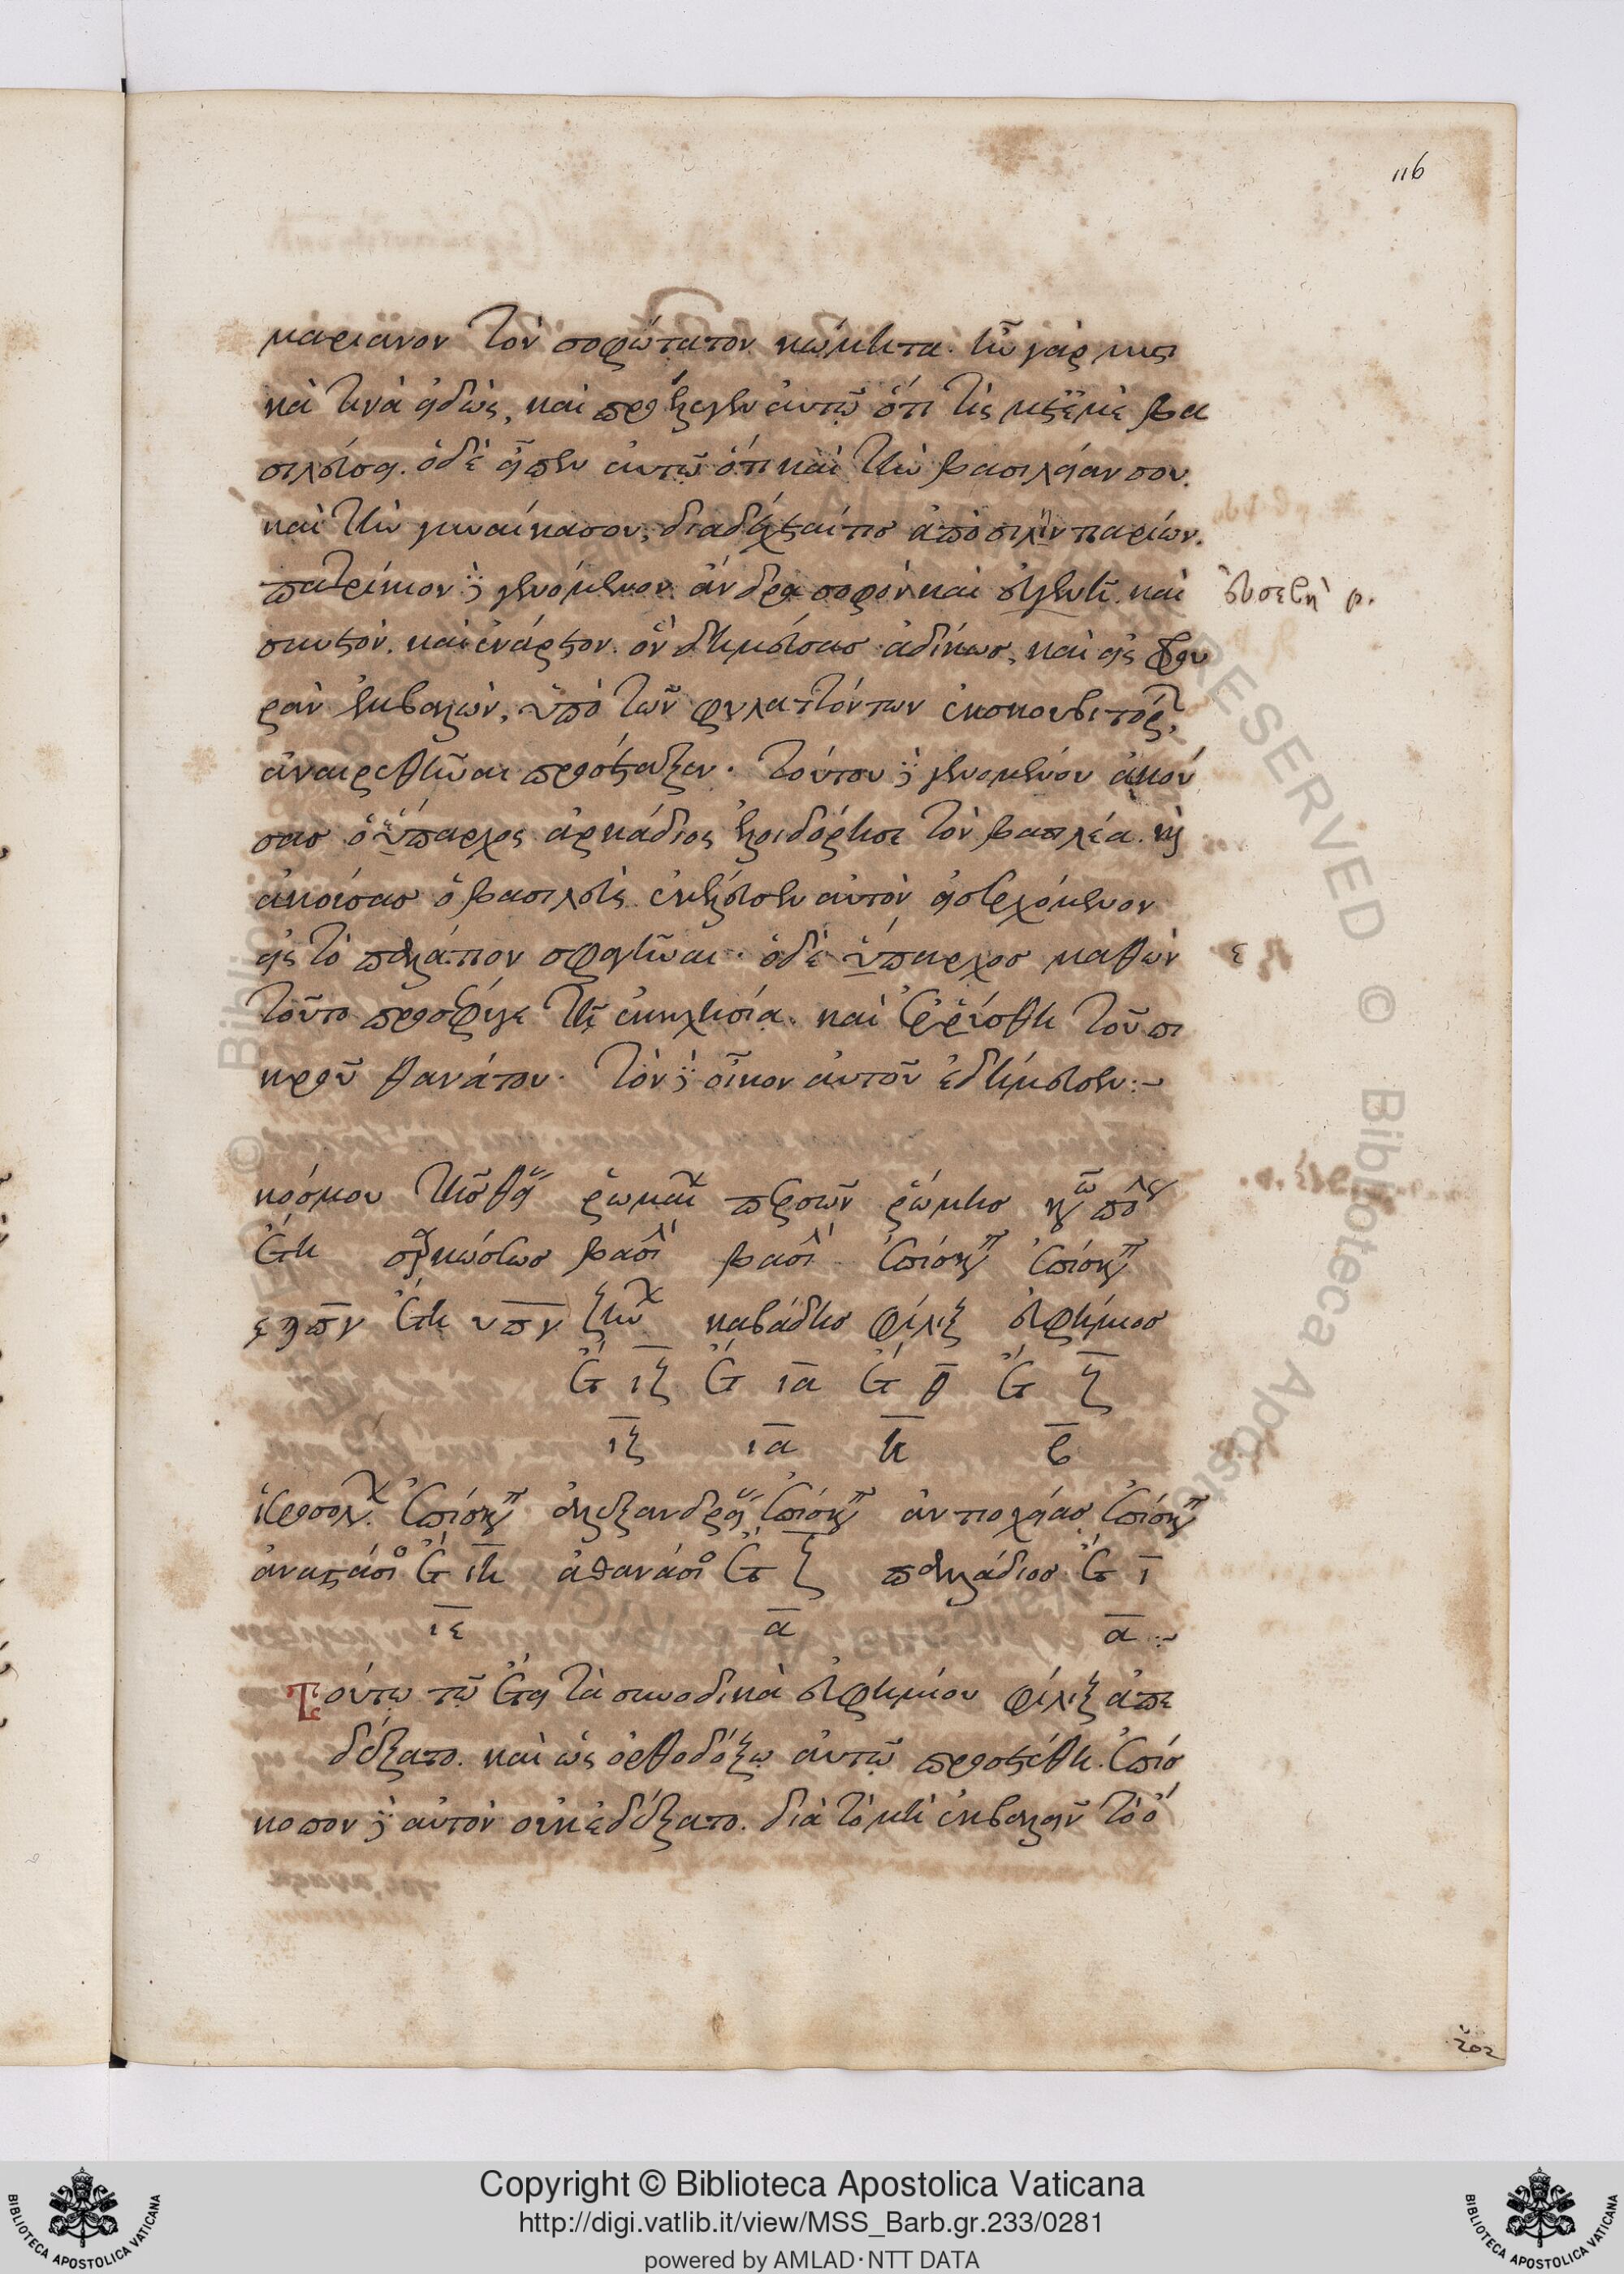 116
μαριανὸν τὸν σοφώτατον κώμητα. ἦν γὰρ μυστι
κά τινα εἰδὼς, καὶ προέλεγεν αὐτῷ ὅτι τίς μετ' ἐμὲ βα
σιλεύσει. ὁ δὲ εἶπεν αὐτῷ ὅτι καὶ τὴν βασιλείαν σου.
καὶ τὴν γυναῖκα σου, διαδέχεταί τις ἀπὸ σιλεντιαρίων.
πατρίκιον δὲ γενόμενον ἄνδρα σοφὸν καὶ εὐγενῆ. καὶ
σκυτον. καὶ ἐνάρετον. ὃν δημεύσας ἀδίκως, καὶ εἰς φρου
ρὰν ἐκβαλὼν, ὑπὸ τῶν φυλαττόντων ἐκσκουβιτόρ
ἀναιρεθῆναι προσέταξεν. τούτου δὲ γενομένου ἀκού
σας ὁ ὕπαρχος ἀρκάδιος ἐλοιδόρησε τὸν βασιλέα. καὶ
ἀκούσας ὁ βασιλεὺς ἐκέλευσεν αὐτὸν εἰσερχόμενον
εἰς τὸ παλάτιον σφαγῆναι. ὁ δὲ ὕπαρχος μαθὼν
τοῦτο προσέφυγε τῇ ἐκκλησίᾳ. καὶ ἐρρύσθη τοῦ πι
κροῦ θανάτου. τὸν δὲ οἶκον αὐτοῦ ἐδήμευσεν:~
εὐσεβῆ
ε
κόσμου τῆς θεί ῥωμαί περσῶν ῥώμης κων πό
ἔτη σαρκώσεως βασι βασι ἐπίσκ ἐπίσκ
͵ε϶πγ ἔτη υπγ ζήνω καβάδης φίλιξ εὐφήμιος
ἔτ ιζ ἔτ ια ἔτ θ ἔτ ζ
ιζ ια η β
ἱεροσολ. ἐπίσκ ἀλεξανδρεί ἐπίσκ ἀντιοχείας ἐπίσκ
ἀναστάσι ἔτ ιη ἀθανάσι ἔτ ζ παλλάδιος ἔτ ι
ιε α α:~
Τούτῳ τῷ ἔτει τὰ συνοδικὰ εὐφημίου φίλιξ ἀπε
δέξατο. καὶ ὡς ὀρθοδόξῳ αὐτῷ προσετέθη. ἐπίσ
κοπον δὲ αὐτὸν οὐκ ἐδέξατο. διὰ τὸ μὴ ἐκβαλεῖν τὸ ὄ
202
Copyright © Biblioteca Apostolica Vaticana
http://digi.vatlib.it/view/MSS_Barb.gr.233/0281
powered by AMLAD·NTT DATA
BIBLIOTECA APOSTOLICA VATICANA
BIBLIOTECA APOSTOLICA VATICANA